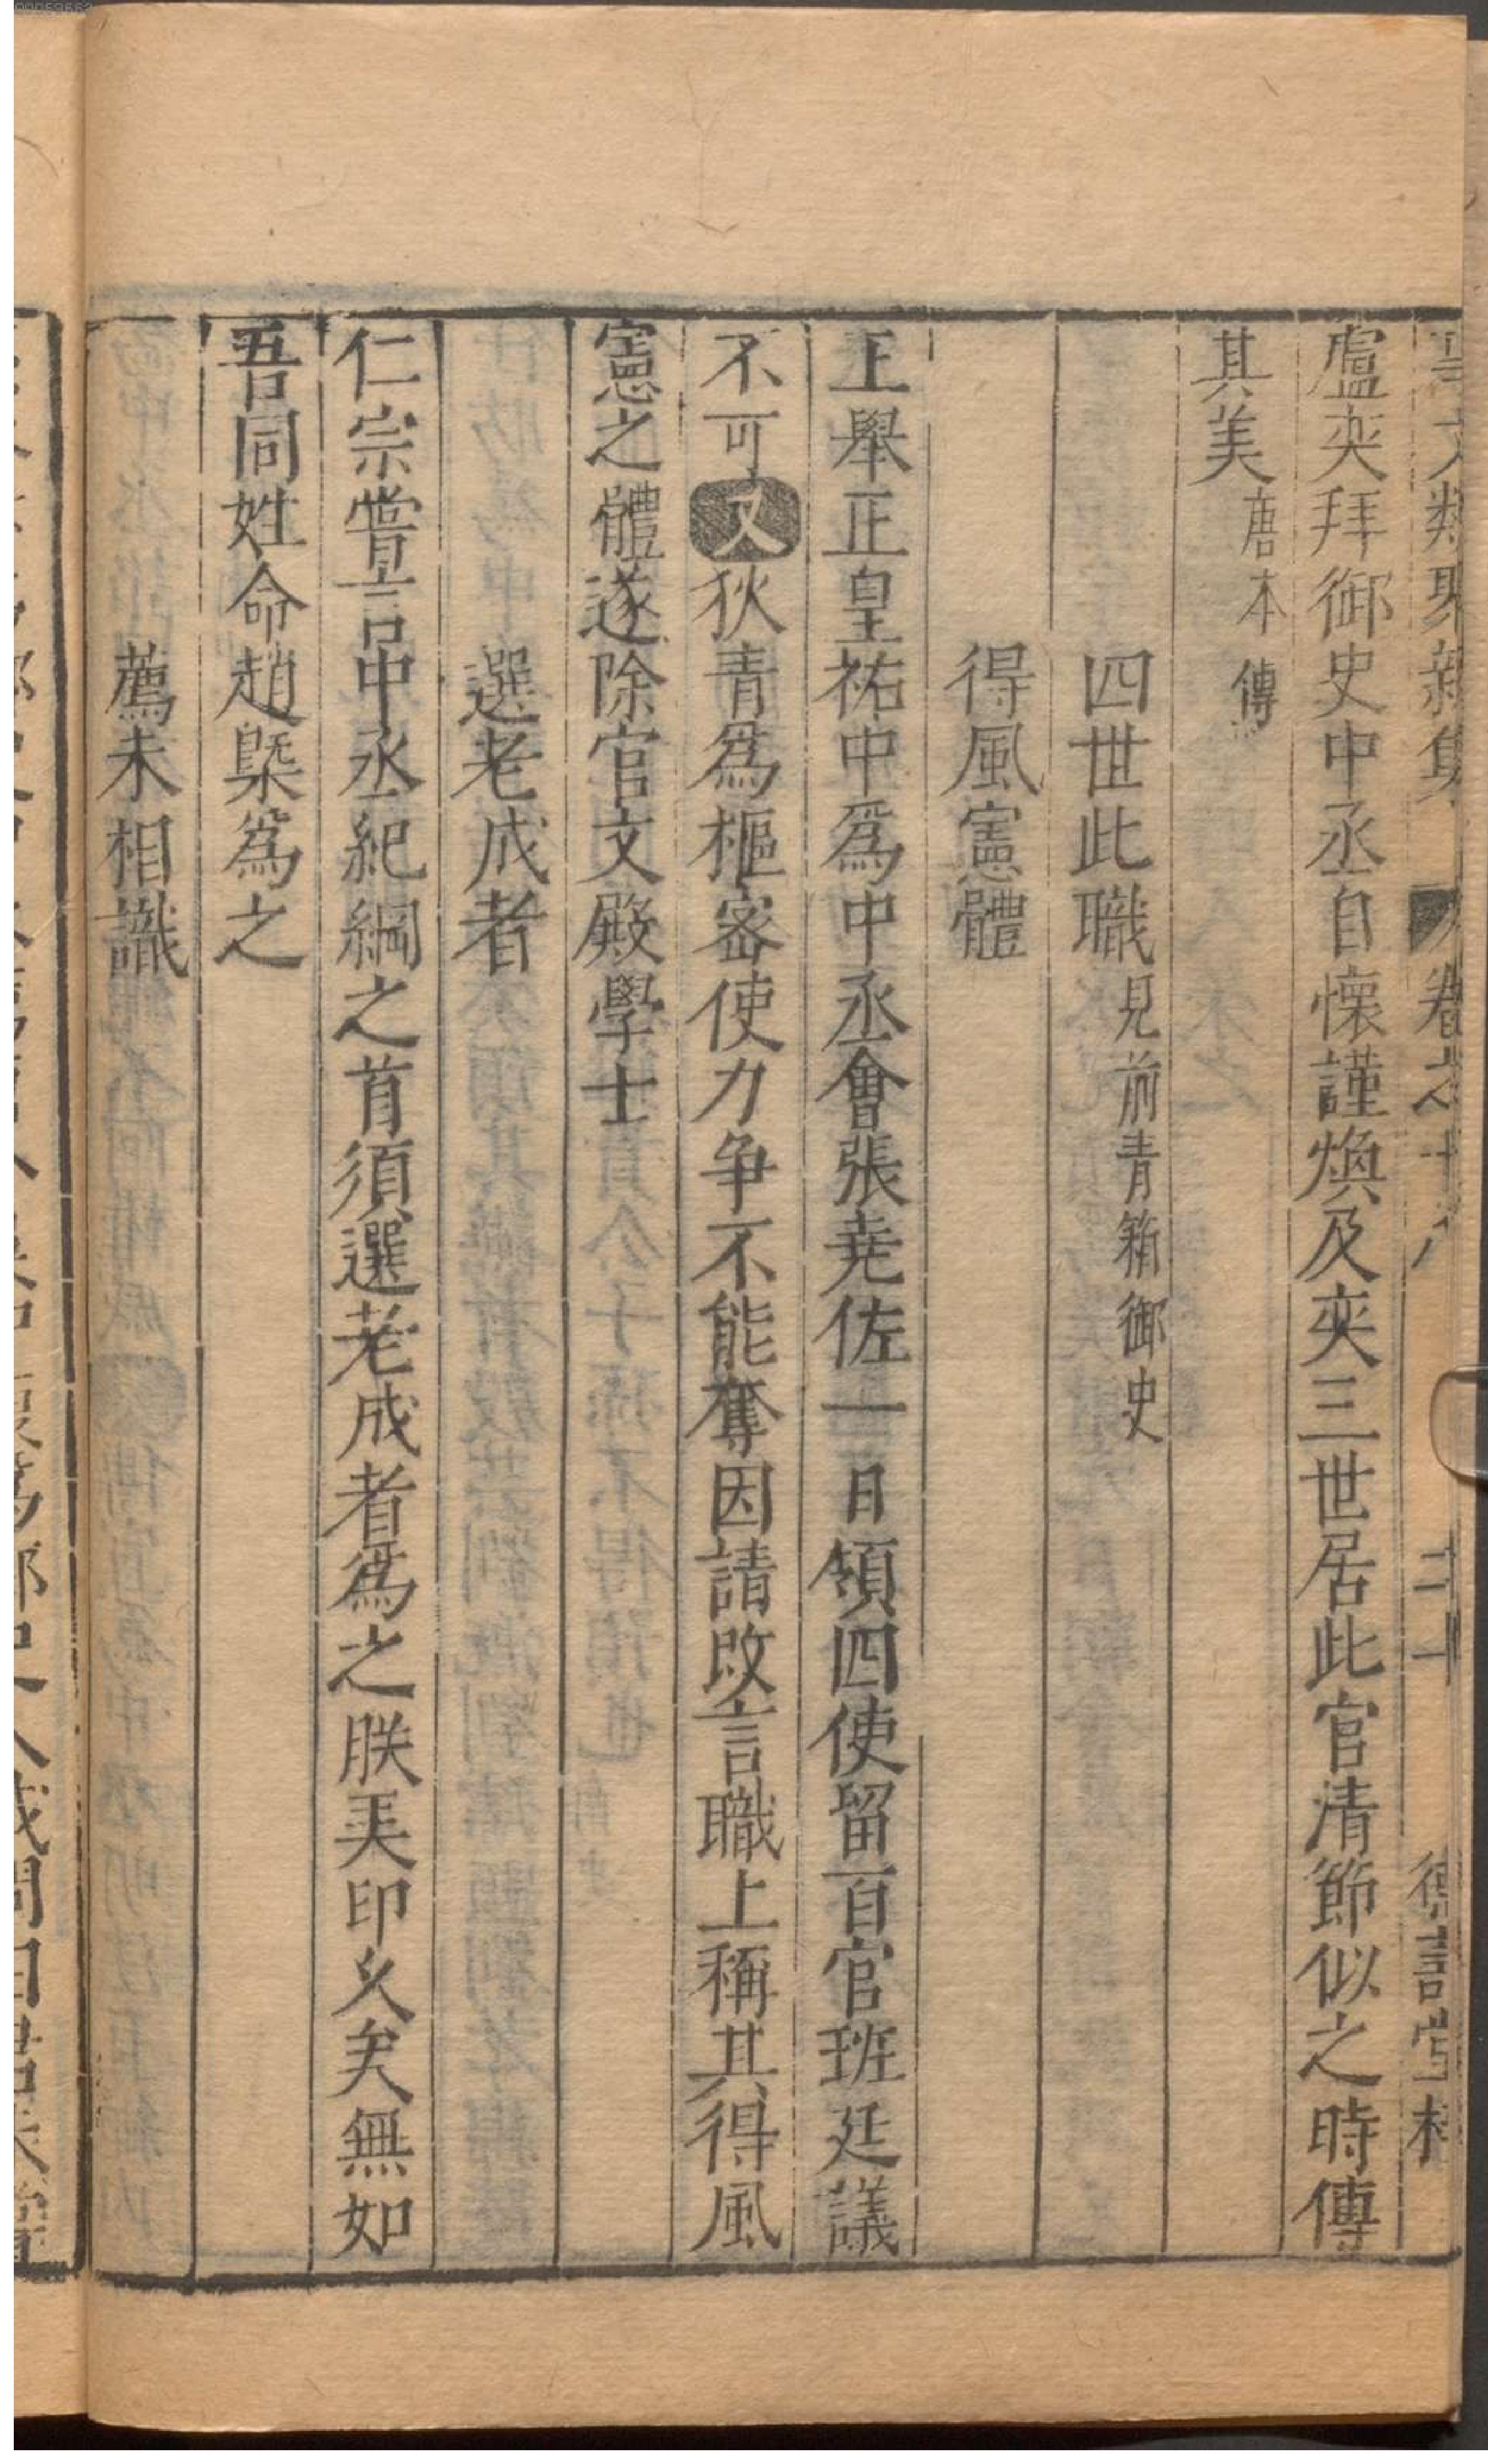 盧奕拜御史中丞自懐謹煥及奕三世居此官清節似之時傳
其美唐本傳
四世此職見前青箱御史
得風憲體
王舉正皇祐中爲中丞會張堯佐一日領四使留百官班廷議
不可又狄青爲樞密使力争不能奪因請改言職上稱其得風
憲之體遂除官文殿學士
選老成者
仁宗嘗言中丞紀綱之首須選老成者爲之朕美印久矣無如
吾同姓命趙槩爲之
薦未相識